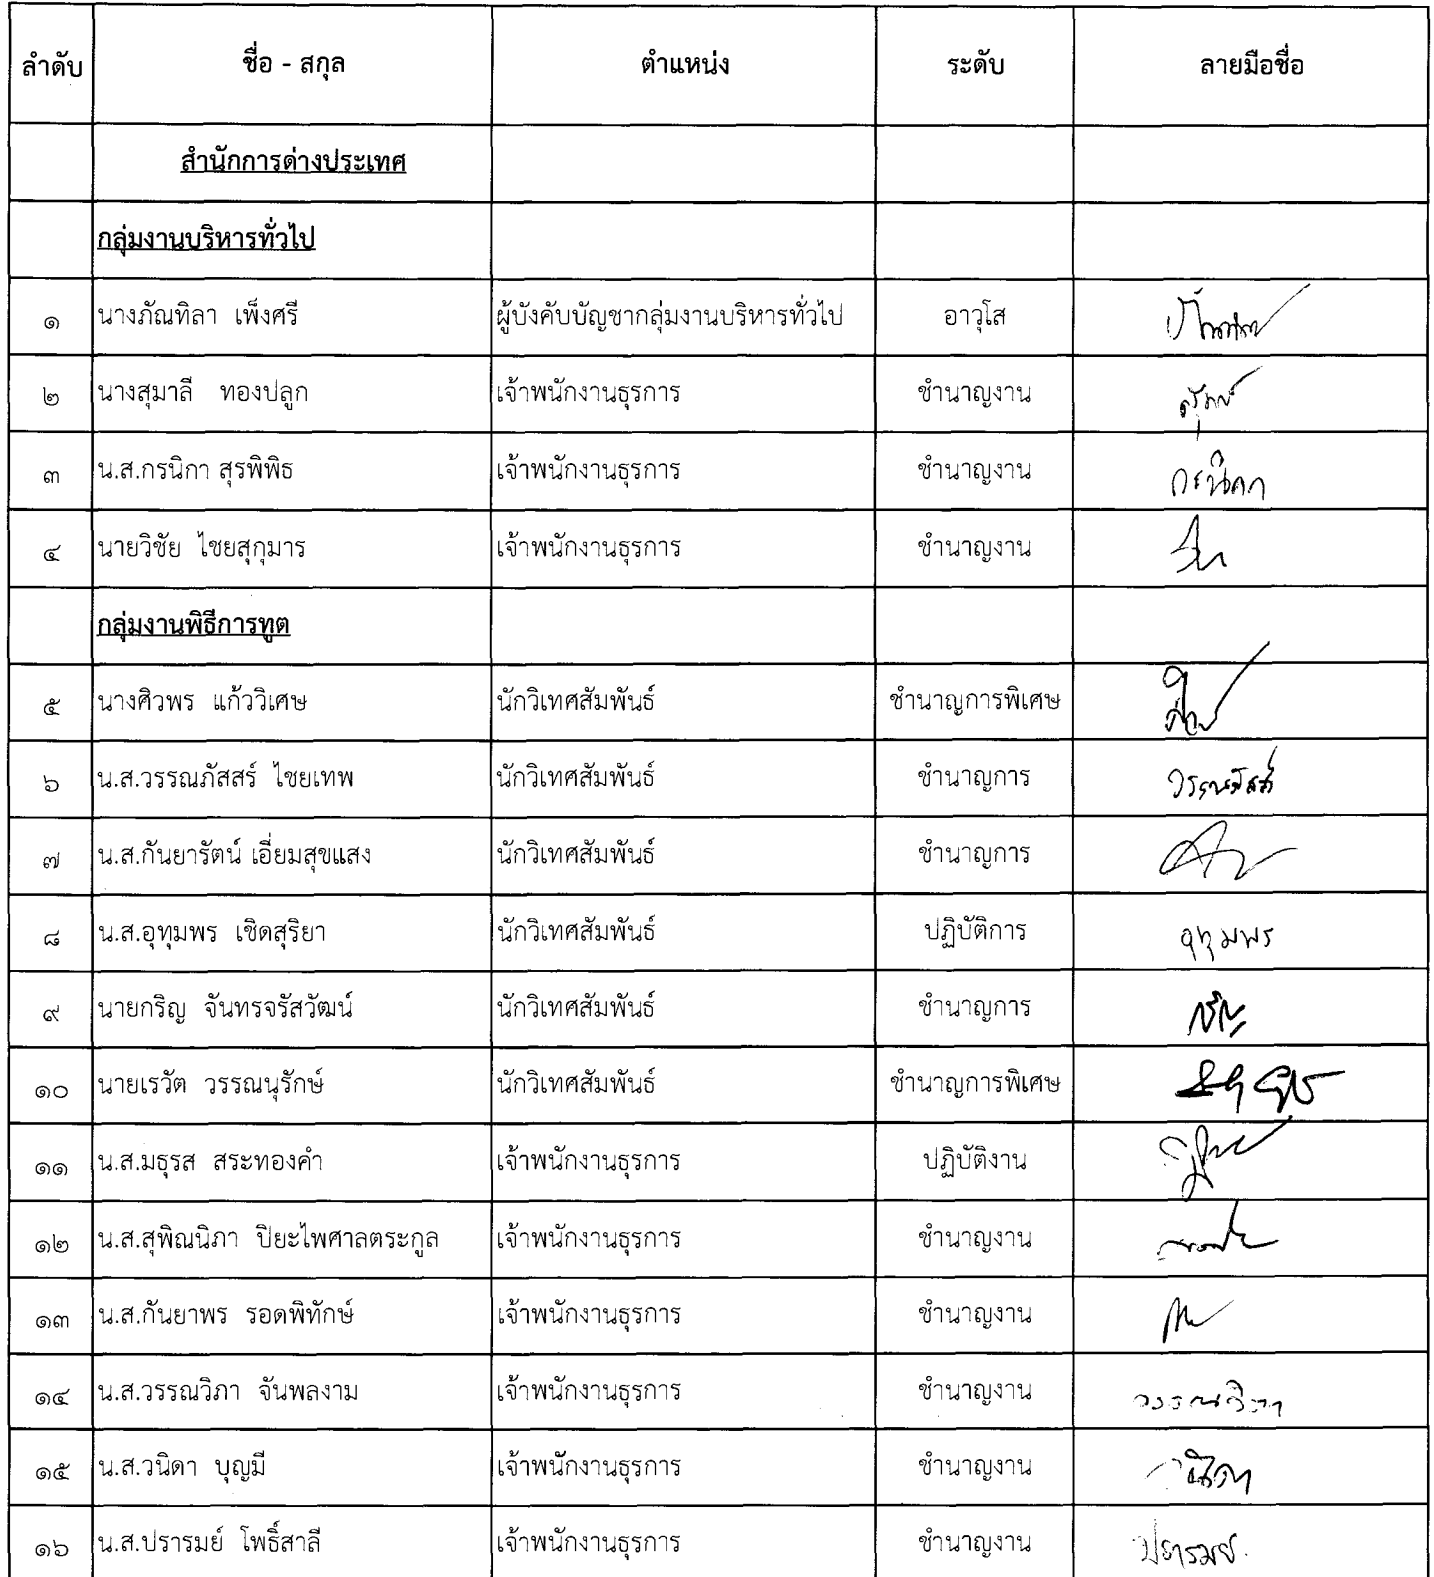 ลำดับ ชื่อ - สกุล ตำแหน่ง ระดับ ลายมือชื่อ
สำนักการต่างประเทศ
กลุ่มงานบริหารทั่วไป
๑ นางภัณฑิลา เพ็งศรี ผู้บังคับบัญชากลุ่มงานบริหารทั่วไป อาวุโส
๒ นางสุมาลี ทองปลูก เจ้าพนักงานธุรการ ชำนาญงาน
๓ น.ส.กรนิกา สุรพิพิธ เจ้าพนักงานธุรการ ชำนาญงาน
๔ นายวิชัย ไชยสุกุมาร เจ้าพนักงานธุรการ ชำนาญงาน
กลุ่มงานพิธีการทูต
๕ นางศิวพร แก้ววิเศษ นักวิเทศสัมพันธ์ ชำนาญการพิเศษ
๖ น.ส.วรรณภัสสร์ ไชยเทพ นักวิเทศสัมพันธ์ ชำนาญการ วรรณภัสสร์
๗ น.ส.กันยารัตน์ เอี่ยมสุขแสง นักวิเทศสัมพันธ์ ชำนาญการ
๘ น.ส.อุทุมพร เชิดสุริยา นักวิเทศสัมพันธ์ ปฏิบัติการ อุทุมพร
๙ นายกริญ จันทรจรัสวัฒน์ นักวิเทศสัมพันธ์ ชำนาญการ กริญ
๑๐ นายเรวัต วรรณนุรักษ์ นักวิเทศสัมพันธ์ ชำนาญการพิเศษ
๑๑ น.ส.มธุรส สระทองคำ เจ้าพนักงานธุรการ ปฏิบัติงาน
๑๒ น.ส.สุพิณนิภา ปิยะไพศาลตระกูล เจ้าพนักงานธุรการ ชำนาญงาน
๑๓ น.ส.กันยาพร รอดพิทักษ์ เจ้าพนักงานธุรการ ชำนาญงาน
๑๔ น.ส.วรรณวิภา จันพลงาม เจ้าพนักงานธุรการ ชำนาญงาน วรรณวิภา
๑๕ น.ส.วนิดา บุญมี เจ้าพนักงานธุรการ ชำนาญงาน วนิดา
๑๖ น.ส.ปรารมย์ โพธิ์สาลี เจ้าพนักงานธุรการ ชำนาญงาน ปรารมย์